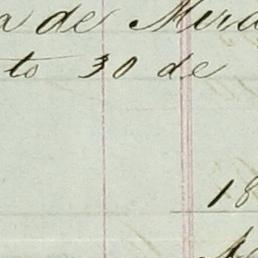 a de Mira
to 30 de
18